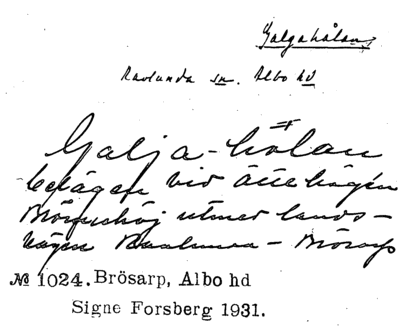 Galgahålan,
Ravlunda sn. Albo hd
Galja-hölan
belägen vid ättehögen
utmed lands-
vägen Ravlunda – Brösarp
№ 1024. Brösarp, Albo hd
Signe Forsberg 1931.